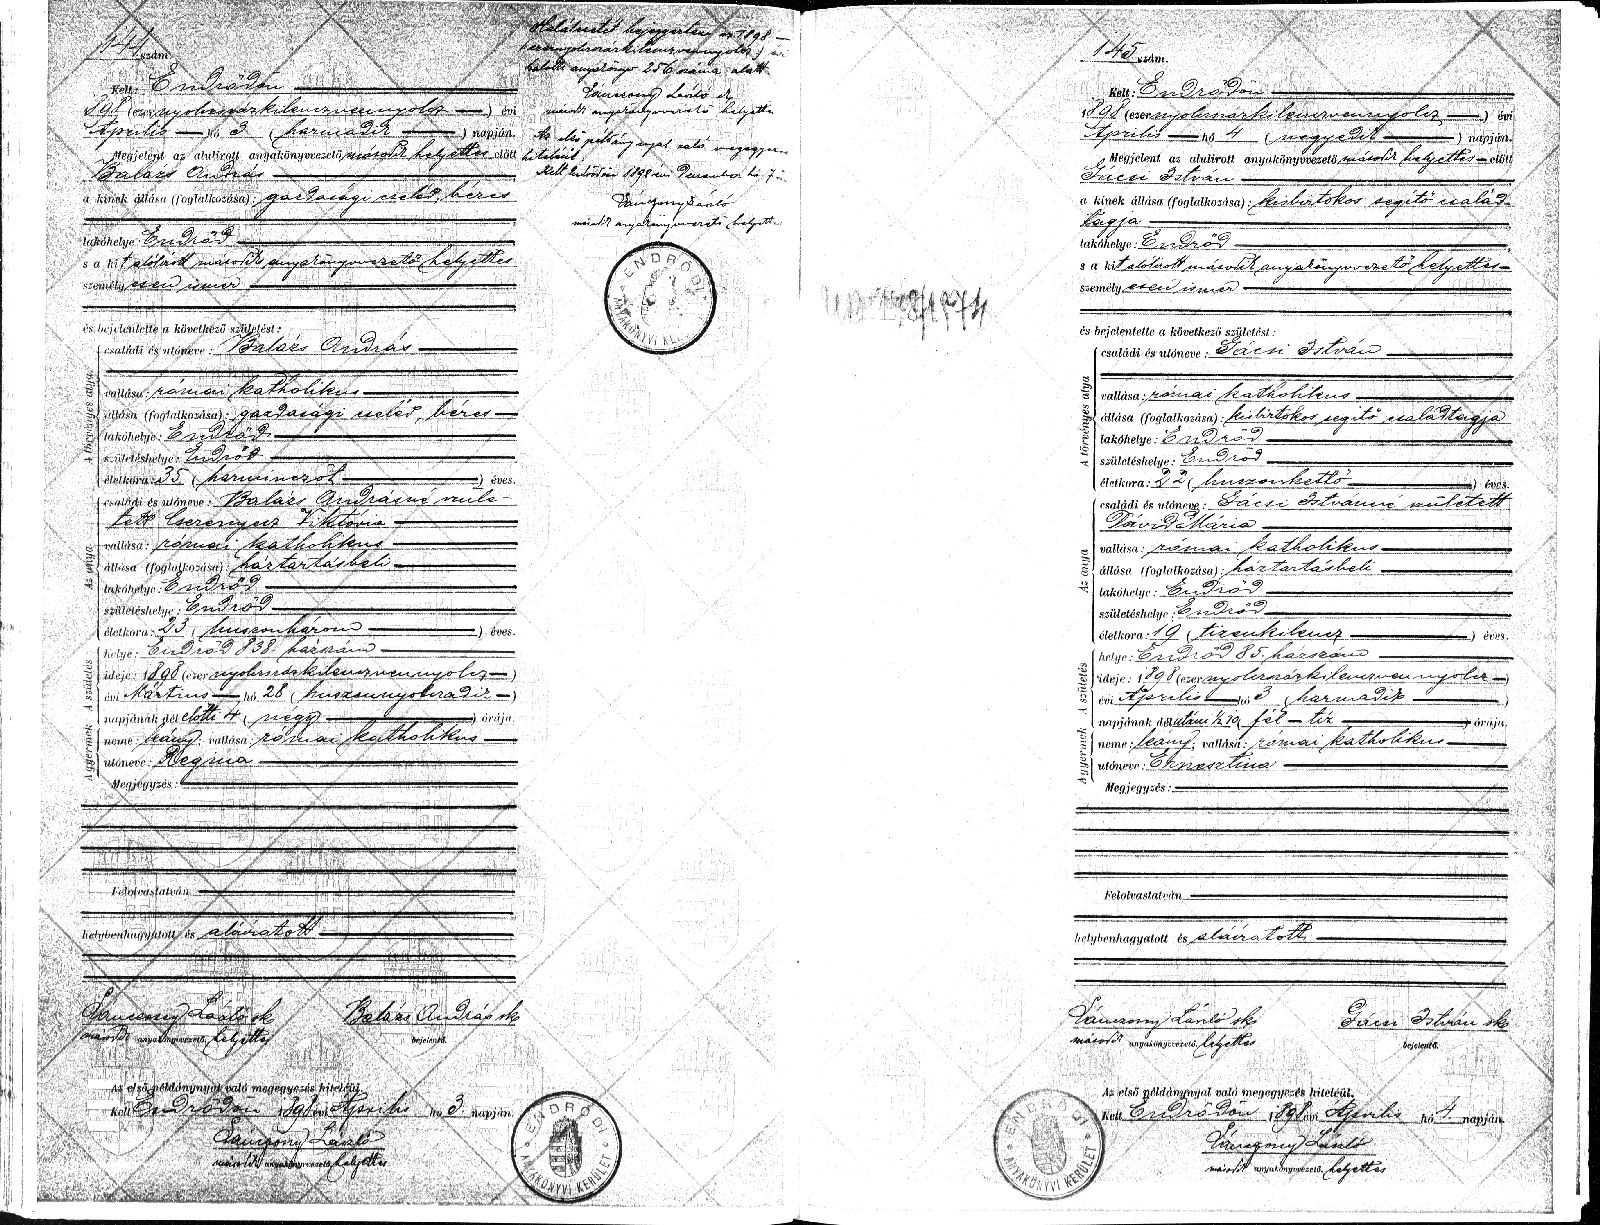 144 szám.
Kelt: Endrődön
898 (ezernyolcszázkilenczvennyolcz) évi
Április hó 3 (harmadik) napján.
Megjelent az alulirott anyakönyvezető második helyettes előtt
Balázs András
a kinek állása (foglalkozása): gazdasági cseléd, béres
lakóhelye: Endrőd
s a kit alólirott második anyakönyvvezető helyettes
személyesen ismer
és bejelentette a következő születést:
A törvényes atya
családi és utóneve: Balázs András
vallása: római katholikus
állása (foglalkozása): gazdasági cseléd, béres
lakóhelye: Endrőd
születéshelye: Endrőd
életkora: 35 (harminczöt) éves.
Az anya
családi és utóneve: Balázs Andrásné szüle-
tett Cserenyecz Viktória
vallása: római katholikus
állása (foglalkozása): háztartásbeli
lakóhelye: Endrőd
születéshelye: Endrőd
életkora: 23 (huszonhárom) éves.
A születés
helye: Endrőd 838. házszám
ideje: 1898 (ezernyolczszázkilenczvennyolcz)
évi Márczius hó 28 (huszonnyolczadik)
napjának dél előtti 4 (négy) órája.
A gyermek
neme: leány; vallása: római katholikus
utóneve: Regina
Megjegyzés:
Felolvastatván
helybenhagyatott és aláiratott
Vánczony László sk
második anyakönyvezető, helyettes
Balázs András sk
bejelentő.
Az első példánynyal való megegyezés hiteléül.
Kelt Endrődön 1898 évi Április hó 3. napján.
Vánczony László
második anyakönyvezető, helyettes
ENDRŐDI
ANYAKÖNYVI KERÜLET
Halálesetét bejegyeztem az 1898
(ezernyolczszázkilenczvennyolcz) évi
halotti anyakönyv 256 száma alatt
Vánczony László sk
második anyakönyvvezető helyettes
Az első példánynyal való megegyezés
hiteléül
Kelt Endrődön 1898 évi December hó 7-én
Vánczony László
második anyakönyvvezető helyettes
ENDRŐDI
ANYAKÖNYVI
145 szám.
Kelt: Endrődön
1898 (ezernyolczszázkilenczvennyolcz) évi
Április hó 4 (negyedik) napján.
Megjelent az alulirott anyakönyvezető második helyettes előtt
Gácsi István
a kinek állása (foglalkozása): kisbirtokos segitő család-
tagja
lakóhelye: Endrőd
s a kit alólirott második anyakönyvvezető helyettes
személyesen ismer
és bejelentette a következő születést:
A törvényes atya
családi és utóneve: Gácsi István
vallása: római katholikus
állása (foglalkozása): kisbirtokos segitő családtagja
lakóhelye: Endrőd
születéshelye: Endrőd
életkora: 22 (huszonkettő) éves.
Az anya
családi és utóneve: Gácsi Istvánné született
Dávid Mária
vallása: római katholikus
állása (foglalkozása): háztartásbeli
lakóhelye: Endrőd
születéshelye: Endrőd
életkora: 19 (tizenkilencz) éves.
A születés
helye: Endrőd 85. házszám
ideje: 1898 (ezernyolczszázkilenczvennyolcz)
évi Április hó 3 (harmadik)
napjának dél utáni ½10 fél tiz órája.
A gyermek
neme: leány; vallása: római katholikus
utóneve: Ernesztina
Megjegyzés:
Felolvastatván
helybenhagyatott és aláiratott
Vánczony László sk
második anyakönyvezető, helyettes
Gácsi István sk
bejelentő.
Az első példánynyal való megegyezés hiteléül.
Kelt Endrődön 1898 évi Április hó 4. napján.
Vánczony László
második anyakönyvezető, helyettes
ENDRŐDI
ANYAKÖNYVI KERÜLET